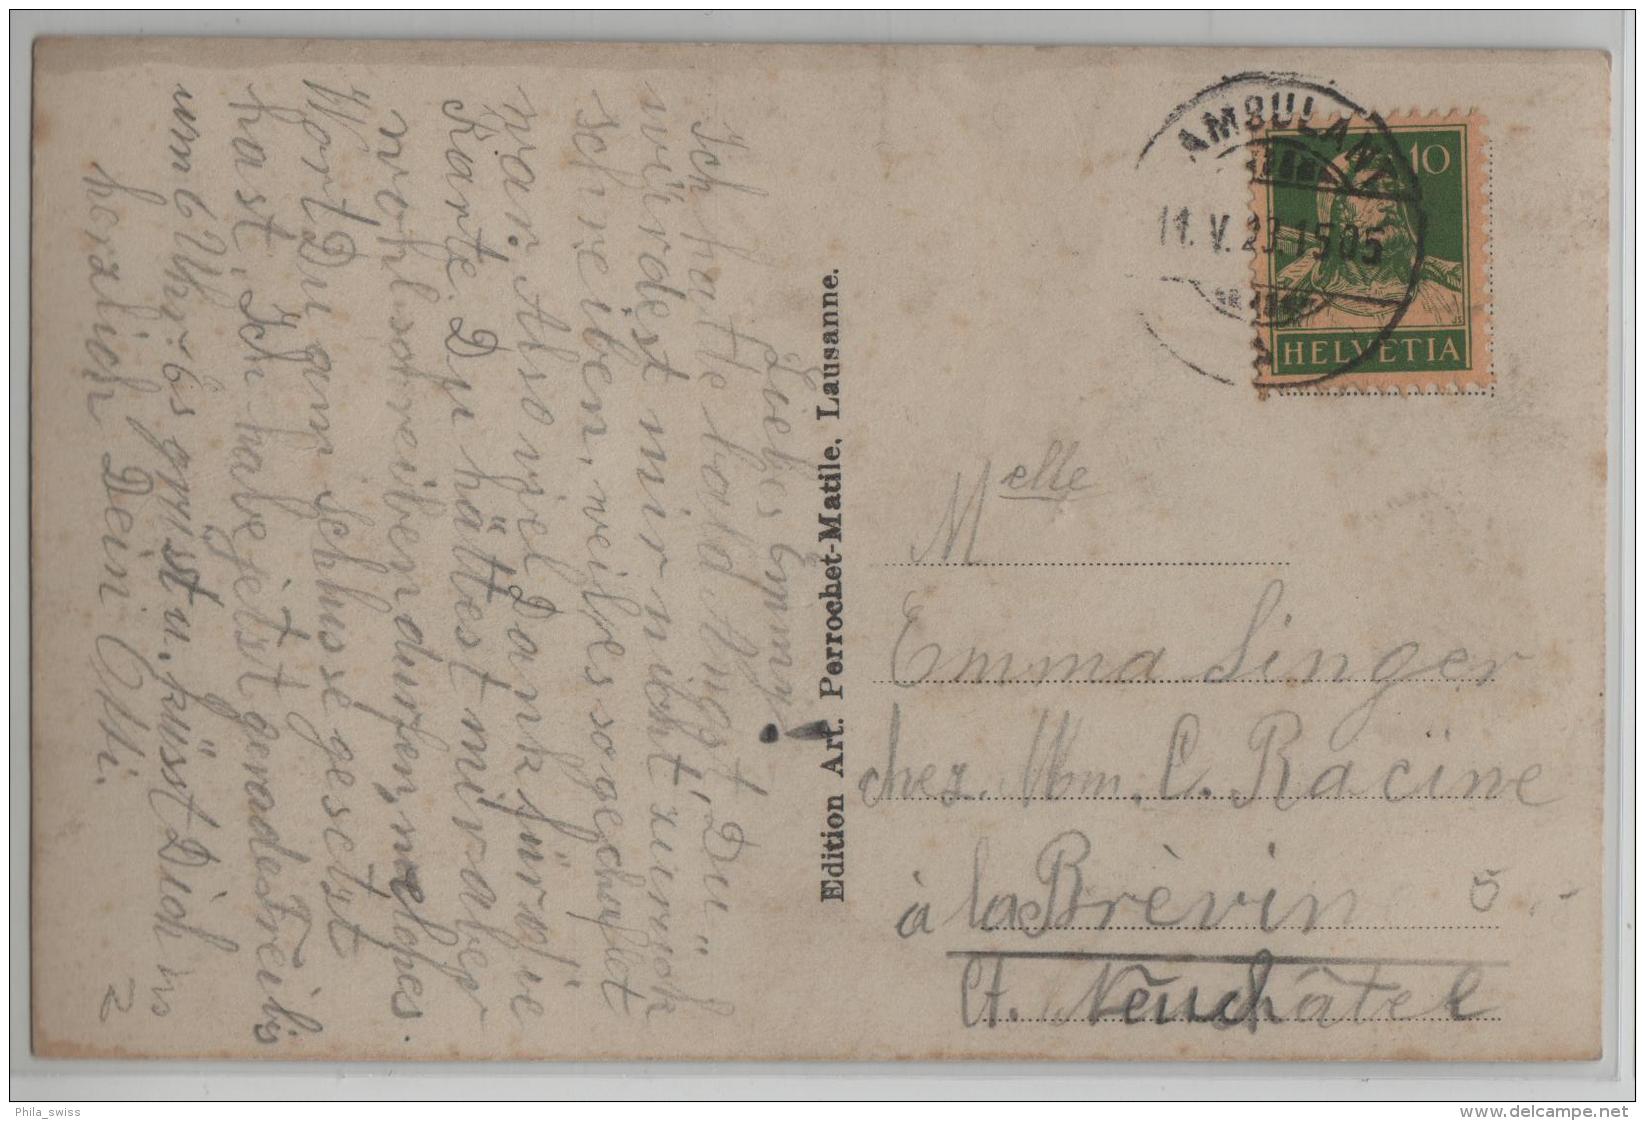 Liebes Emmy!
Ich hatte bald Angst, Du
würdest mir nicht zurück
schreiben, weil es so gechaflet
war. Also viel Dank für die
Karte. Du hättest mir aber
wohl schreiben durfen, welches
Wort Du zum Schlusse gesetzt
hast. Ich habe jetzt gerade Freibis
um 6 Uhr. Es grüsst u. küsst Dich
herzlich Dein Otti.
Edition Art. Perrochet-Matile, Lausanne.
AMBULANT
11. V. 23. 1505
10
HELVETIA
Melle
Emma Singer
chez. Mm. C. Racïne
à la Brèvine
Ct. Neuchâtel
Phila_swiss
www.delcampe.net